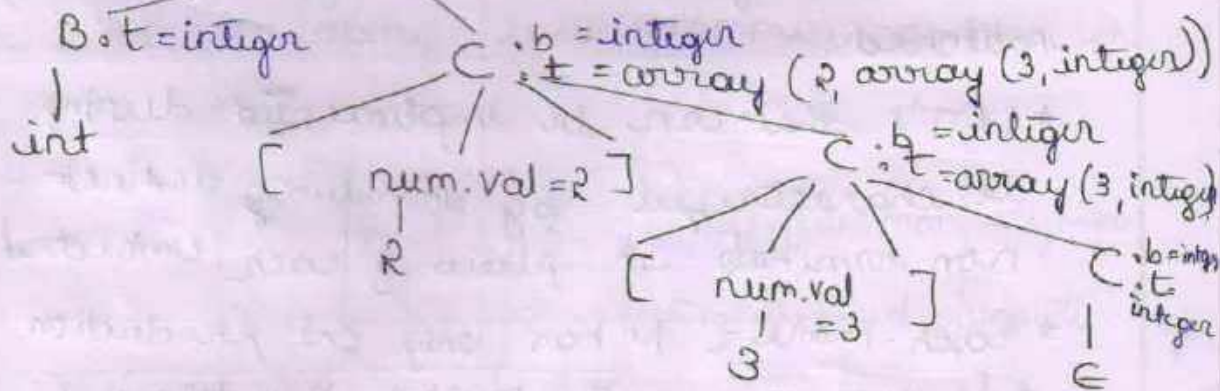 B.t = integer
C .b = integer
.t = array (2, array (3, integer))
int
[ num.val = 2 ]
C .b = integer
.t = array (3, integer)
2
[ num.val = 3 ]
C .b = integer
.t integer
3
ϵ